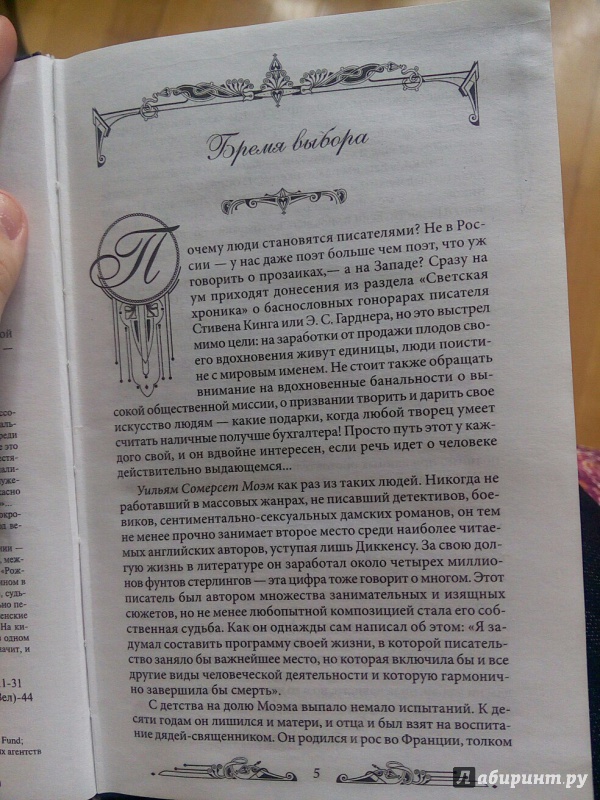 Бремя выбора
Почему люди становятся писателями? Не в Рос-
сии — у нас даже поэт больше чем поэт, что уж
говорить о прозаиках,— а на Западе? Сразу на
ум приходят донесения из раздела «Светская
хроника» о баснословных гонорарах писателя
Стивена Кинга или Э. С. Гарднера, но это выстрел
мимо цели: на заработки от продажи плодов сво-
его вдохновения живут единицы, люди поисти-
не с мировым именем. Не стоит также обращать
внимание на вдохновенные банальности о вы-
сокой общественной миссии, о призвании творить и дарить свое
искусство людям — какие подарки, когда любой творец умеет
считать наличные получше бухгалтера! Просто путь этот у каж-
дого свой, и он вдвойне интересен, если речь идет о человеке
действительно выдающемся...
Уильям Сомерсет Моэм как раз из таких людей. Никогда не
работавший в массовых жанрах, не писавший детективов, бое-
виков, сентиментально-сексуальных дамских романов, он тем
не менее прочно занимает второе место среди наиболее читае-
мых английских авторов, уступая лишь Диккенсу. За свою дол-
гую жизнь в литературе он заработал около четырех миллио-
нов фунтов стерлингов — эта цифра тоже говорит о многом. Этот
писатель был автором множества занимательных и изящных
сюжетов, но не менее любопытной композицией стала его соб-
ственная судьба. Как он однажды сам написал об этом: «Я за-
думал составить программу своей жизни, в которой писатель-
ство заняло бы важнейшее место, но которая включила бы и все
другие виды человеческой деятельности и которую гармонич-
но завершила бы смерть».
С детства на долю Моэма выпало немало испытаний. К де-
сяти годам он лишился и матери, и отца и был взят на воспита-
ние дядей-священником. Он родился и рос во Франции, толком
5
Лабиринт.ру